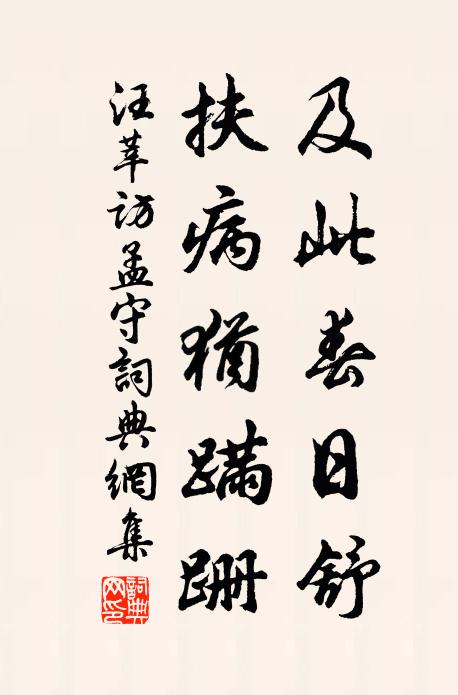 及此春日舒
扶病猶蹣跚
汪莘訪孟守詞典網集
詞典網印